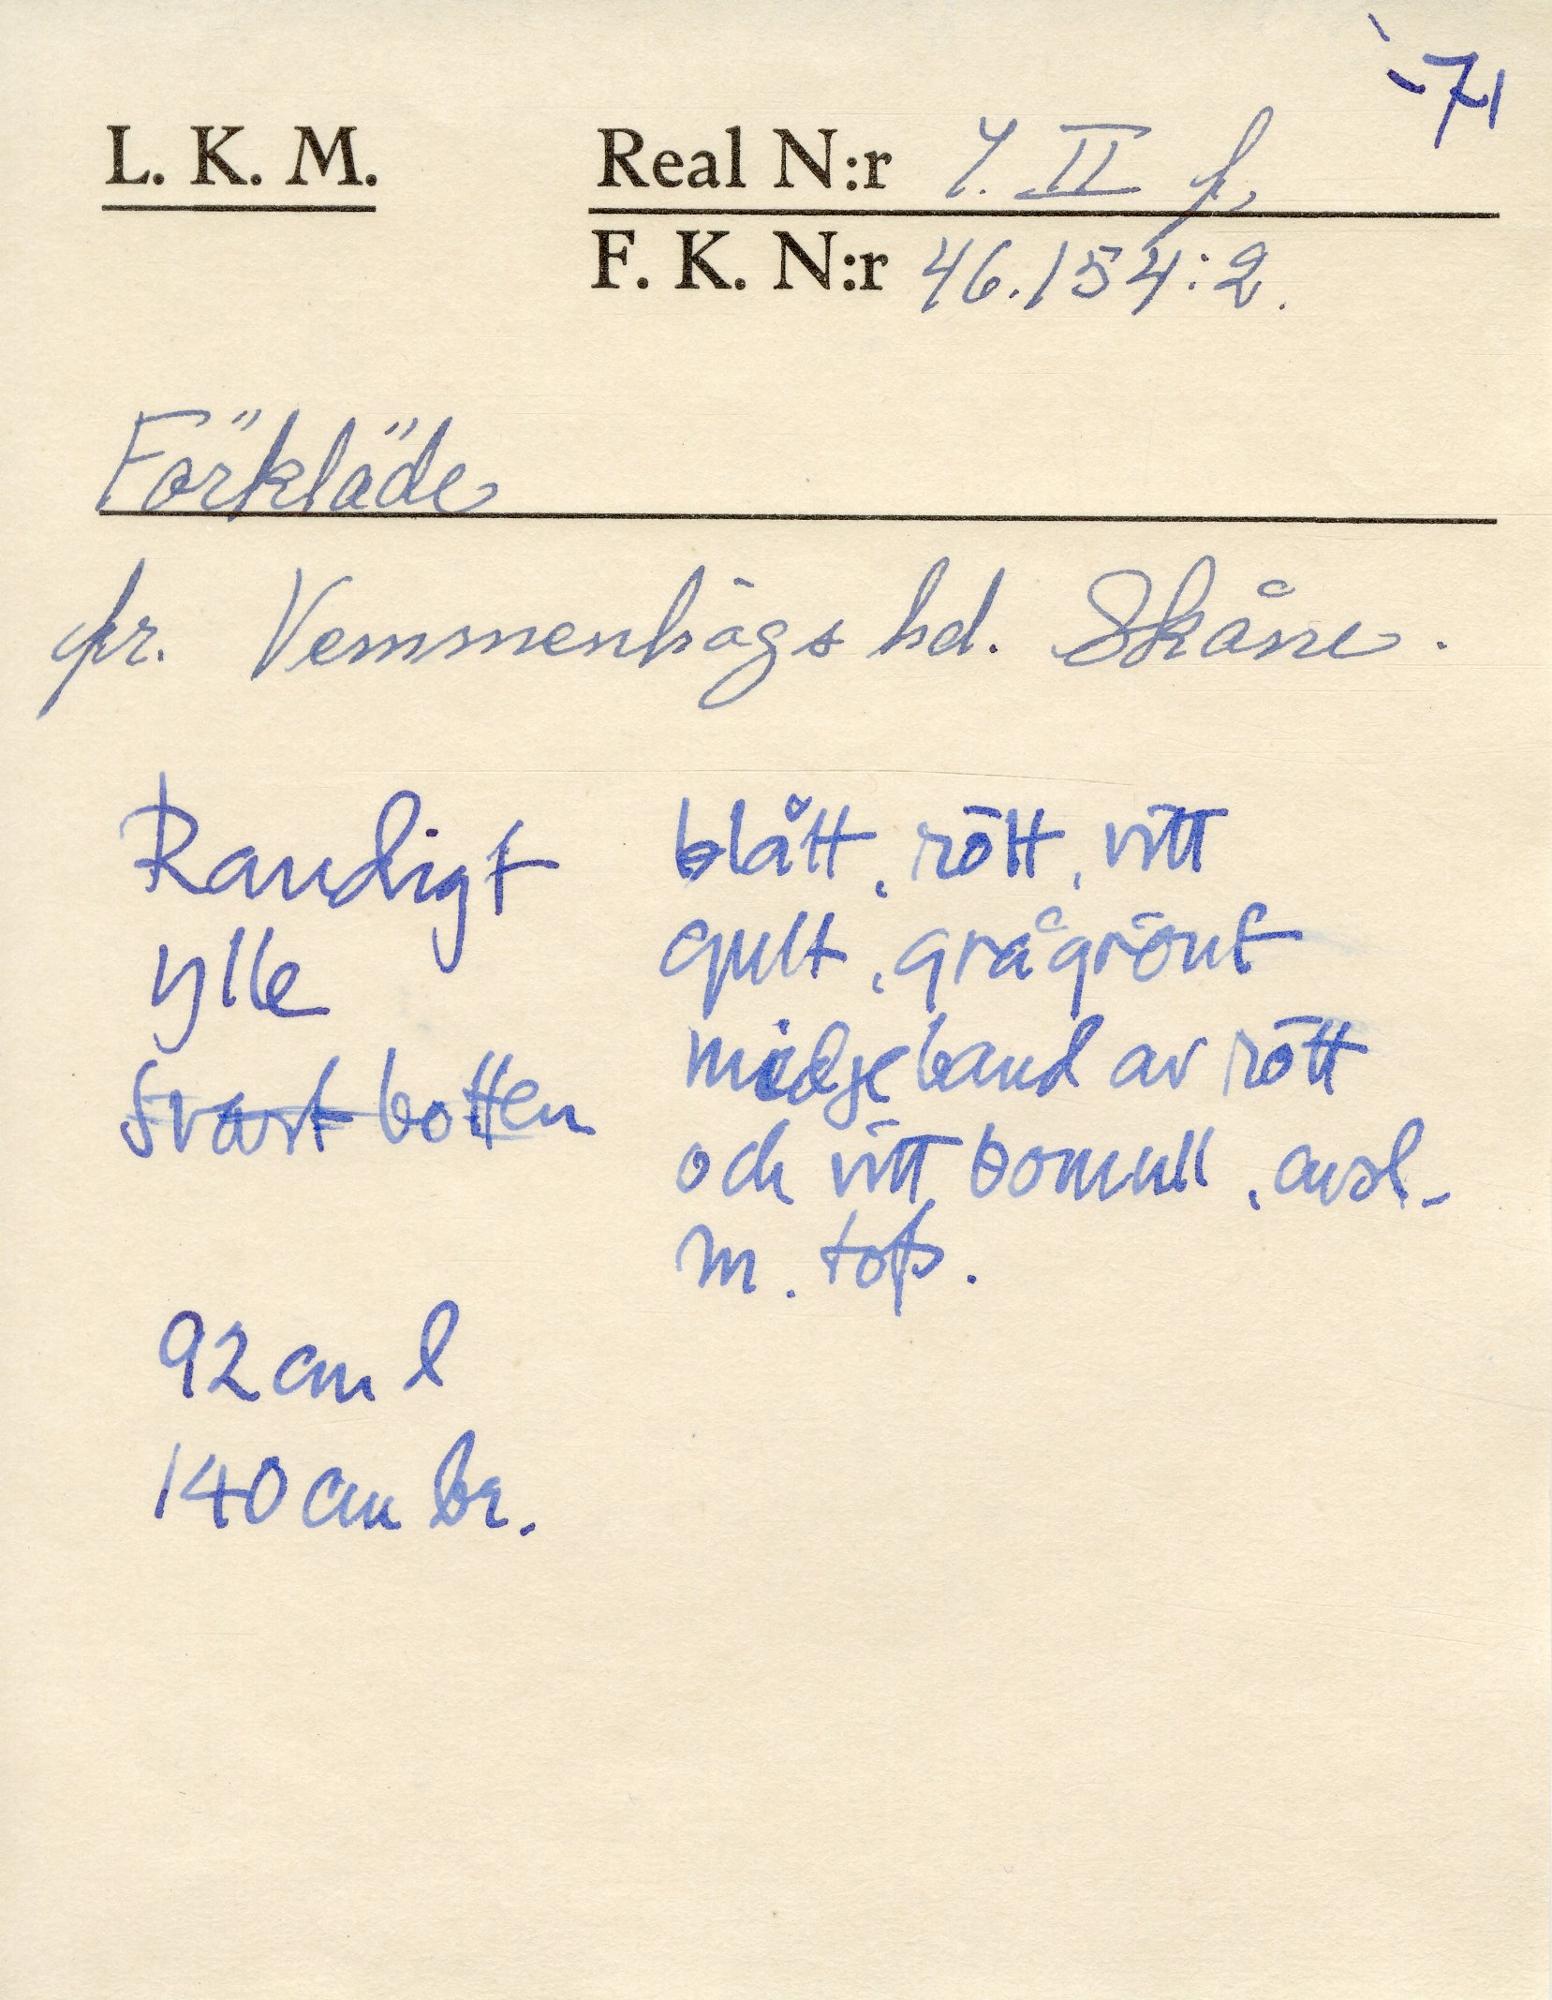 -71
L. K. M.
Real N:r 7. II f,
F. K. N:r 46.154:2.
Förkläde
fr. Vemmenhögs hd. Skåne.
Randigt
ylle
Svart botten
blått, rött, vitt
gult, grågrönt
midjeband av rött
och vitt bomull, avsl.
m. tofs.
92 cm l
140 cm br.